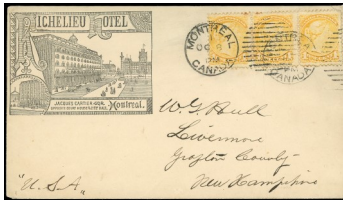 RICHELIEU HOTEL
JACQUES CARTIER SQR.
Montreal.
MONTREAL
OC 6
CANADA
W. G. Hull
Livermore
Grafton County
New Hampshire
"U.S.A"